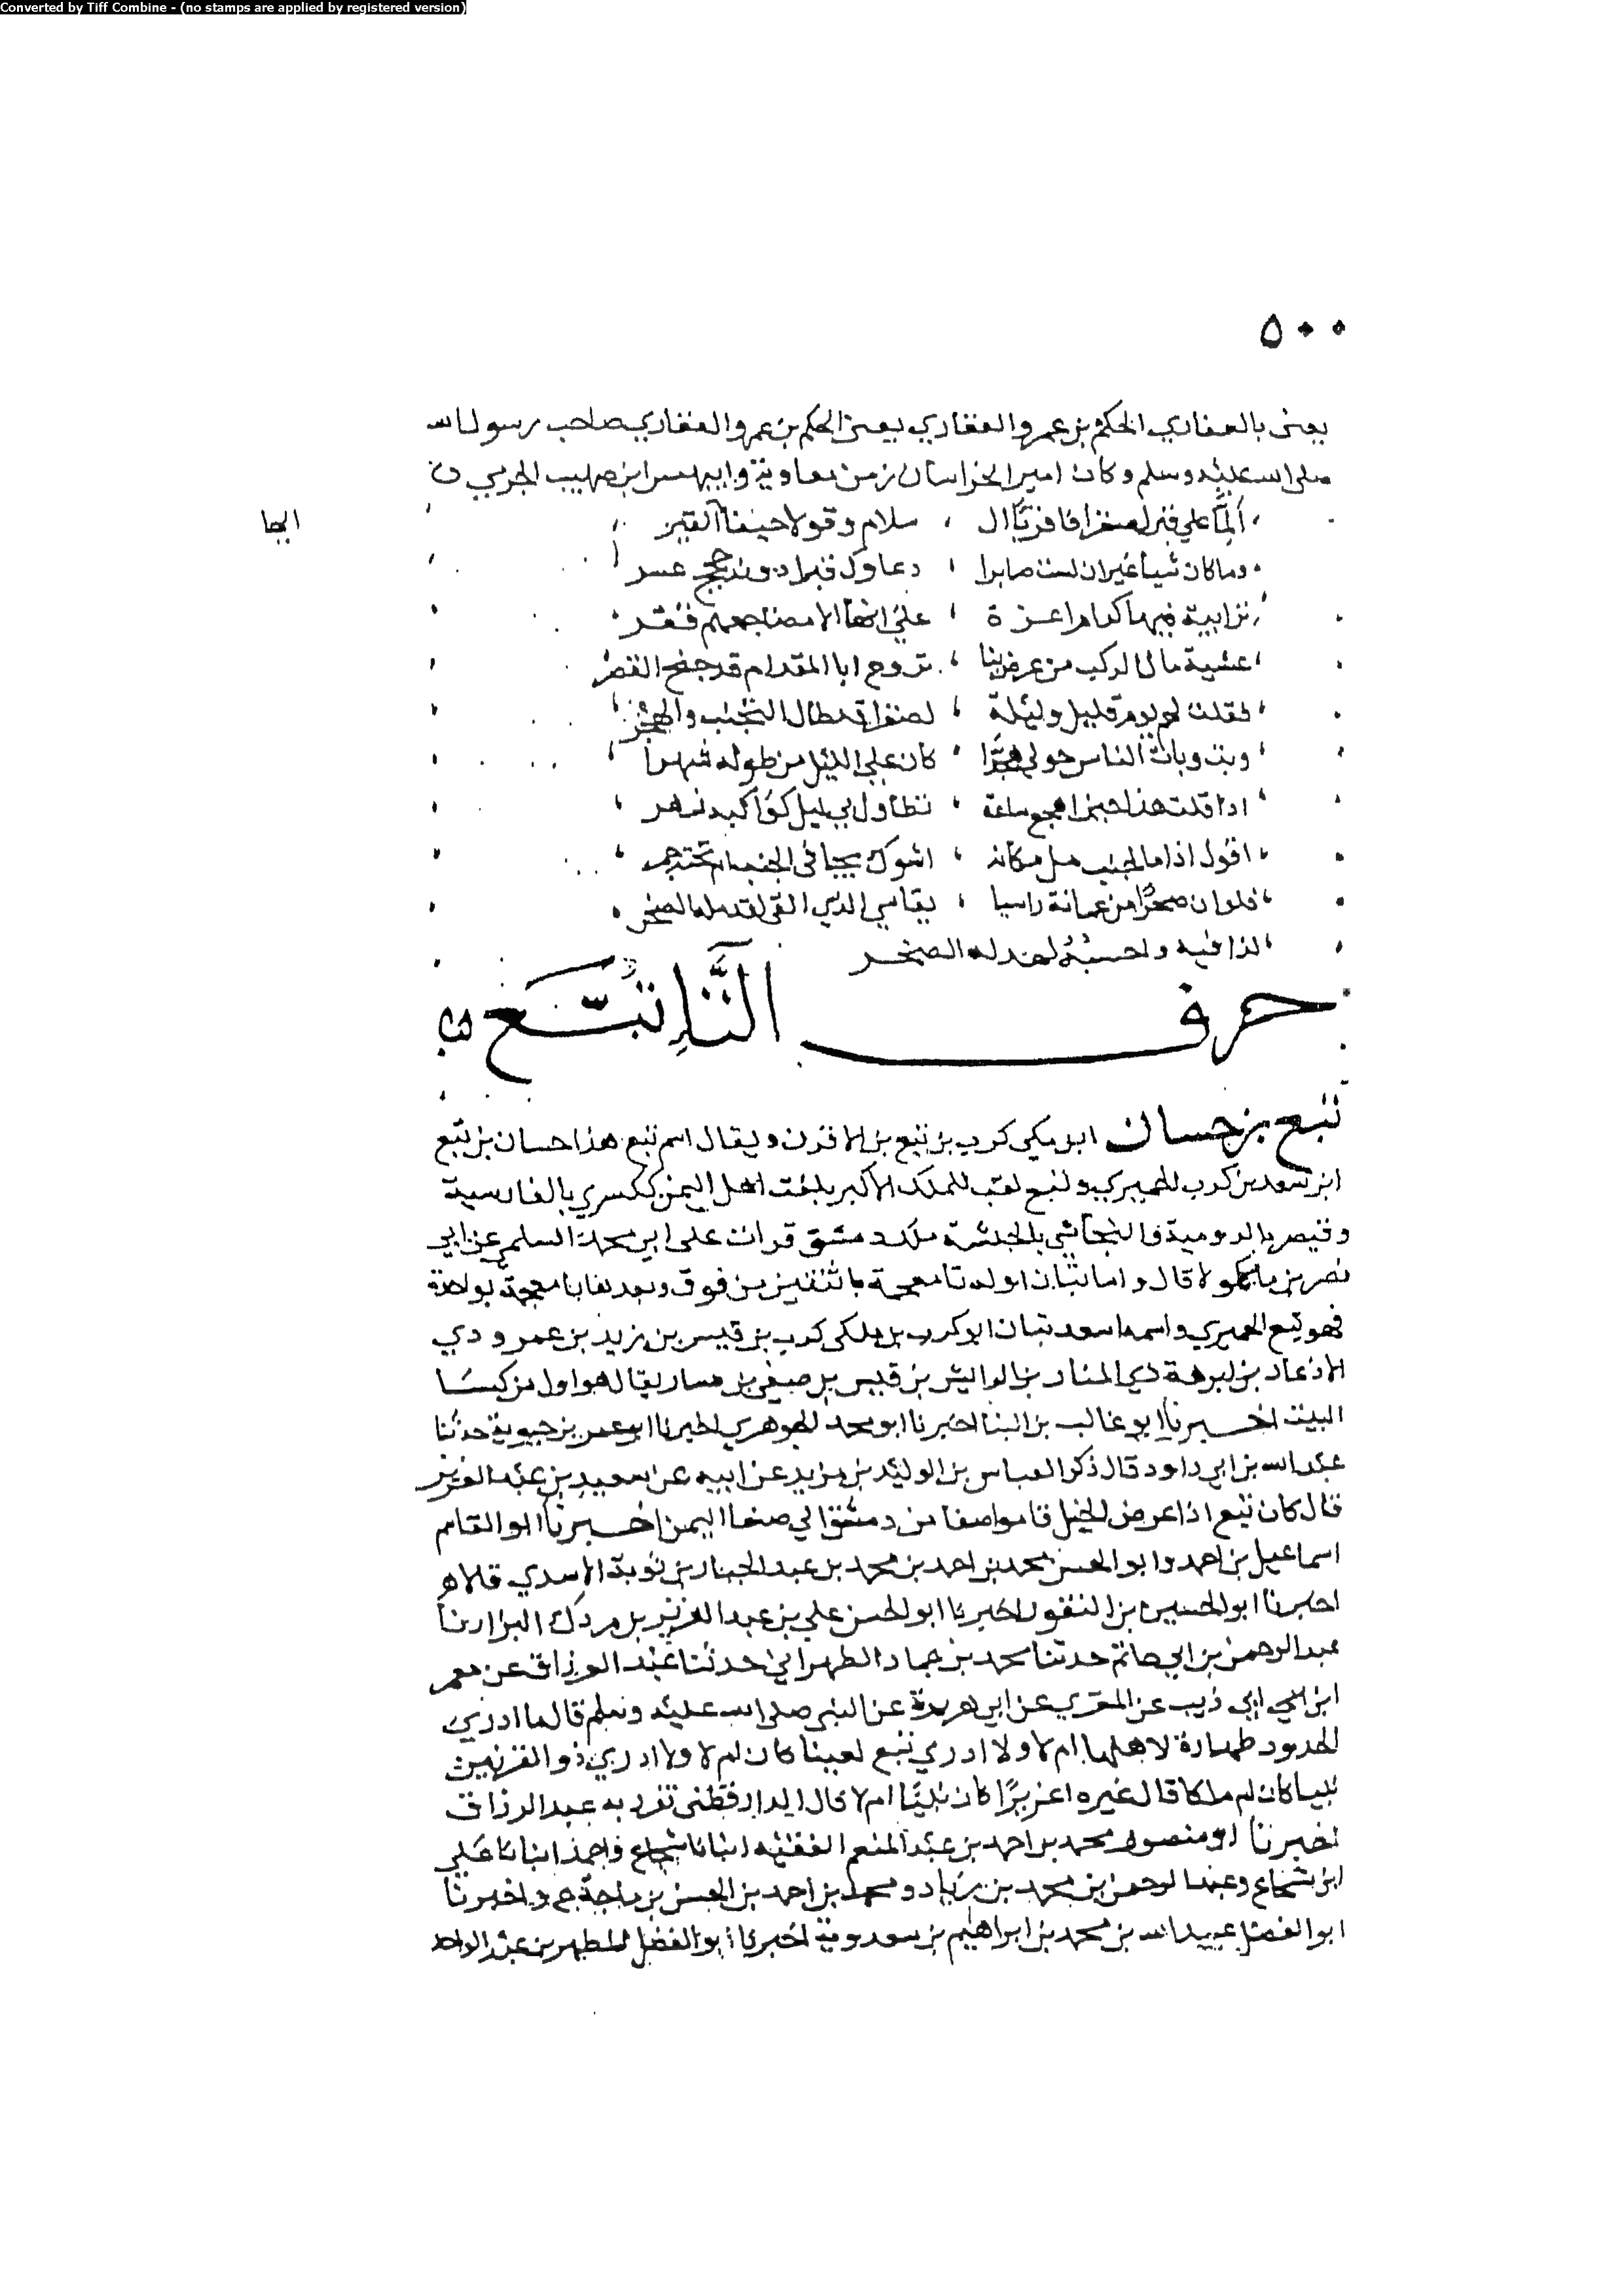 Converted by Tiff Combine - (no stamps are applied by registered version)
٥٠٠
يعنى بالغفاري الحكم بن عمرو الغفاري يعنى الحكم بن عمرو الغفاري صاحب رسول الله
صلى الله عليه وسلم وكان امير الخراسان زمن معاوية وابيهس ابن صهيب الجرمي
ألما علي قبر لصفرا فاقريا ال سلام وقولا حينا القبر
وما كان شيا غيران لست صابرا دعاوك قبرا دونه حجج عسر
ترابية فيها كرام اعزة على انها الا مضاجعهم قفر
عشية مال الركب من عرض بنا تروح ابا المقدام قد جنح القصر
فقلت لهم يوم قليل وليلة لصفرا قد طال التجنب والهجر
وبت وبات الناس حولي هجرا كان علي الليل من طوله شهر
اذا قلت هذا حين اهجع ساعة تطاول بي ليل كواكبه زهر
اقول اذا ما الجنب مل مكانه اشوك يجافى الجنب ام تحته جمر
فلوان صخرا من عماية راسيا يقاسي الذي القى لقد مله الصخر
الجا
حرف التاء تبع
تبع بن حسان ابن ملكي كرب بن تبع بن الاقرن ويقال اسم تبع هذا حسان بن تبع
ابن سعد بن كرب الحميري وتبع لقب للملك الاكبر بلغت اهل اليمن ككسري بالفارسية
وقيصر بالرومية والنجاشي بالحبشة ملك دمشق قرات على ابي محمد السلمي عن ابي
نصر بن ماكولا قال واما تبان اوله تا معجمة باثنتين من فوق وبعدها با معجمة بواحدة
فهو تبع الحميري واسمه اسعد تبان ابو كرب بن ملكى كرب بن قيس بن زيد بن عمرو دي
الاذعار بن ابرهة ذي المنار بن الرايش بن قيس بن صيفي بن سبا يقال هو اول من كسا
البيت اخبرنا ابو غالب بن البنا اخبرنا ابو محمد الجوهري اخبرنا ابو عمر بن حيوية حدثنا
عبد الله بن ابي داود قال ذكر العباس بن الوليد بن مزيد عن ابيه عن سعيد بن عبد العزيز
قال كان تبع اذا عرض الخيل قاموا صفا من دمشق الي صنعا اليمن اخبرنا ابو القاسم
اسماعيل بن احمد وابو الحسن محمد بن احمد بن محمد بن عبد الجبار بن توبة الاسدي قالا
اخبرنا ابو الحسين بن النقور اخبرنا ابو الحسن علي بن عبد العزيز بن مردك البزار نا
عبد الرحمن بن ابي حاتم حدثنا محمد بن حماد الطهراني حدثنا عبد الرزاق عن معمر
ابن ابي ذيب عن المقبري عن ابي هريرة عن النبي صلى الله عليه وسلم قال ما ادري
الحدود طهارة لاهلها ام لا ولا ادري تبع لعينا كان ام لا ولا ادري ذو القرنين
نبيا كان ام ملكا قال غيره اعزيرا كان نبيا ام لا قال الدارقطني تفرد به عبد الرزاق
اخبرنا ابو منصور محمد بن احمد بن عبد المنعم الفقيه انبانا شجاع واحمد ابنانا علي
ابن شجاع وعبد الرحمن بن محمد بن زياد ومحمد بن احمد بن الحسن بن ماجة ح واخبرنا
ابو الفضل عبيد الله بن محمد بن ابراهيم بن سعدوية اخبرنا ابو الفضل المطهر بن عبد الواحد